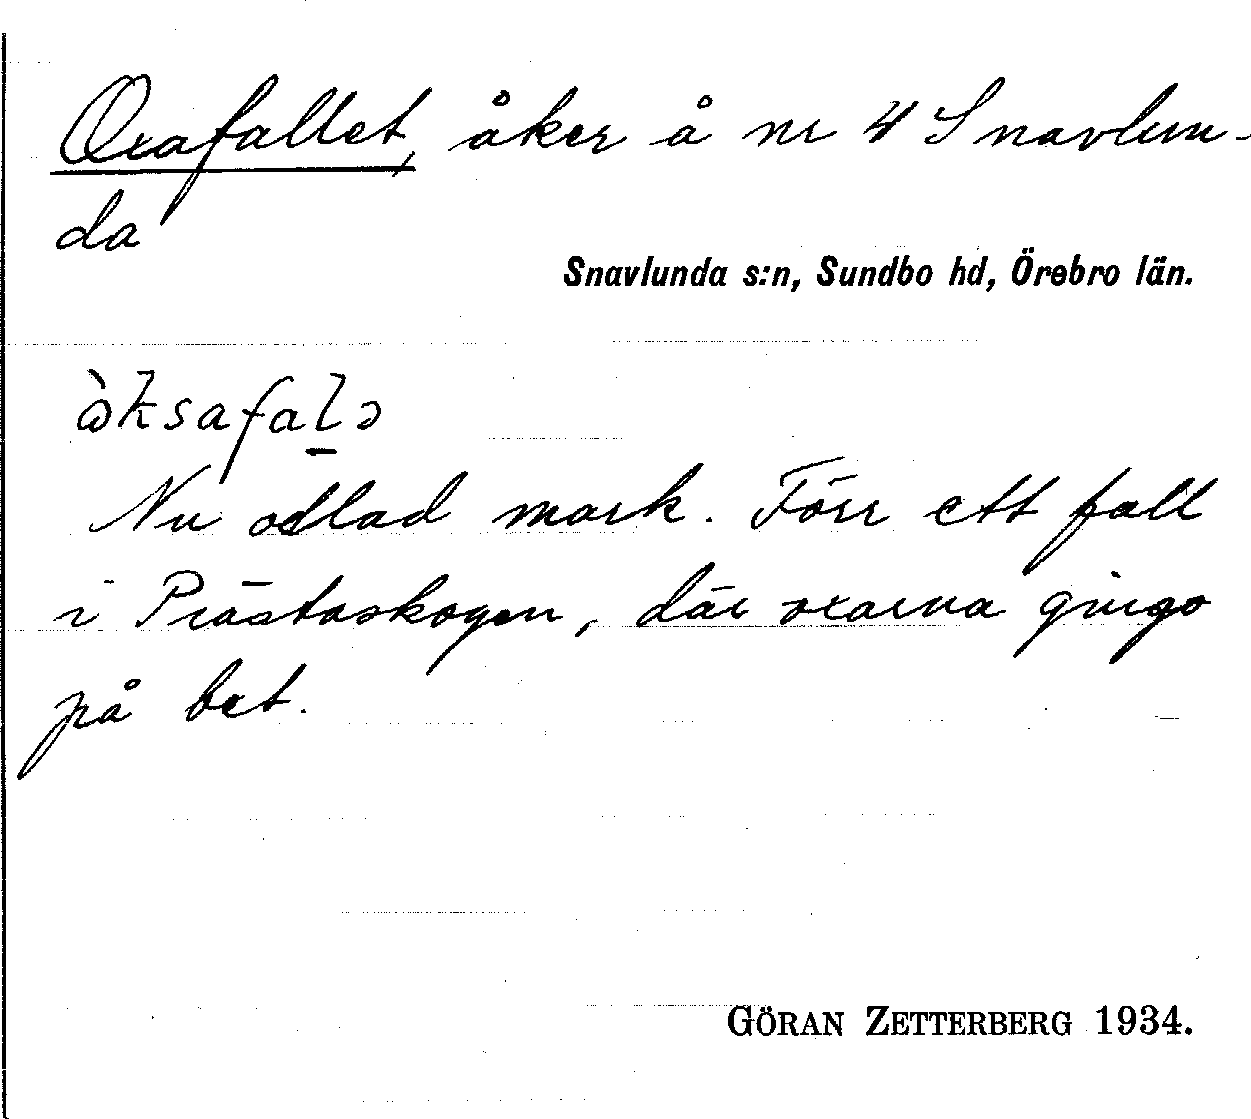 Oxafallet, åker å nr 4 Snavlun-
da
Snavlunda s:n, Sundbo hd, Örebro län.
ὼksafaḻə
Nu odlad mark. Förr ett fall
i Prästaskogen, där oxarna gingo
på bet.
GÖRAN ZETTERBERG 1934.